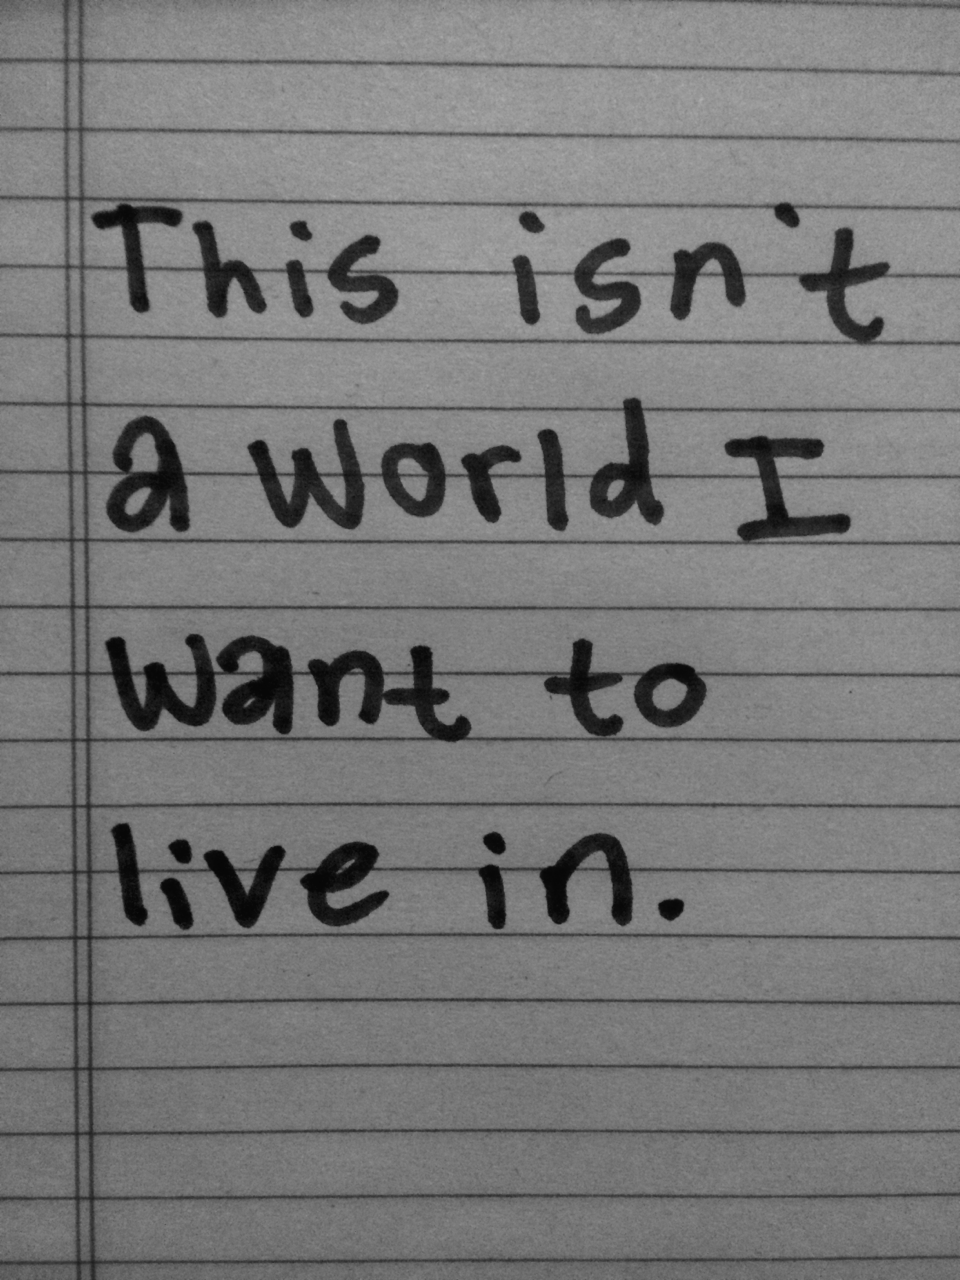 This isn't
a world I
want to
live in.